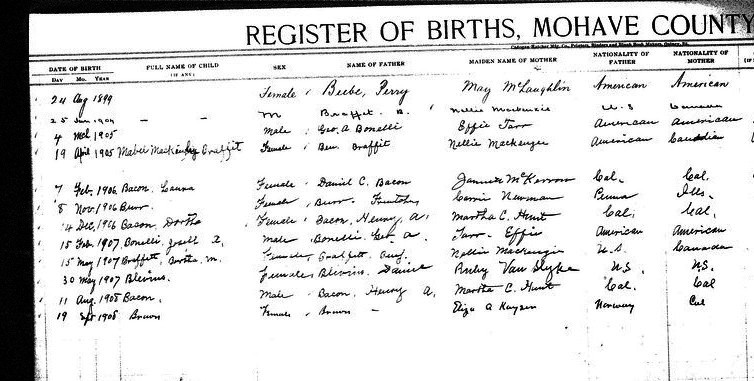 REGISTER OF BIRTHS, MOHAVE COUNTY
DATE OF BIRTH FULL NAME OF CHILD SEX NAME OF FATHER MAIDEN NAME OF MOTHER NATIONALITY OF FATHER NATIONALITY OF MOTHER
DAY MO. YEAR (IF ANY)
24 Aug 1899 Female Beebe, Perry May McLaughlin American American
25 Jan 1904 — — M Braffet. B. Nellie Mackenzie U.S
4 Mch 1905 Male Geo. A Bonelli Effie Tarr American American
19 April 1905 Female Ben Braffit Nellie Mackenzie American Canadian
7 Feb. 1906 Bacon, Laura Female Daniel C. Bacon Cal. Cal.
8 Nov. 1906 Burr. Female Burr. Carrie Newman Penna Ills.
4 Dec. 1906 Bacon, Female Bacon, Henry A. Martha C. Hunt Cal. Cal.
15 Feb. 1907 Bonelli, Male Bonelli. Geo. A. Tarr - Effie American American
15 May 1907 Braffett, M. Female Braffett. Benj. Nellie Mackenzie U.S. Canada
30 May 1907 Blevins. Female Blevins. Daniel Ruby Van Slyke U.S. U.S.
11 Aug. 1908 Bacon. Male Bacon, Henry A. Martha C. Hunt Cal. Cal
19 Sept 1908 Brown Female Brown — Eliza A Norway Cal